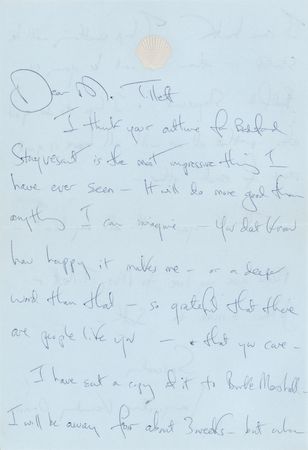 Dear Mr. Tillett
I think your outline for Bedford
Stuyvesant is the most impressive thing I
have ever seen – It will do more good than
anything I can imagine – You dont know
how happy it makes me – or a deeper
word than that – so grateful that there
are people like you – & that you care –
I have sent a copy of it to Burke Marshall –
I will be away for about 3 weeks – but when